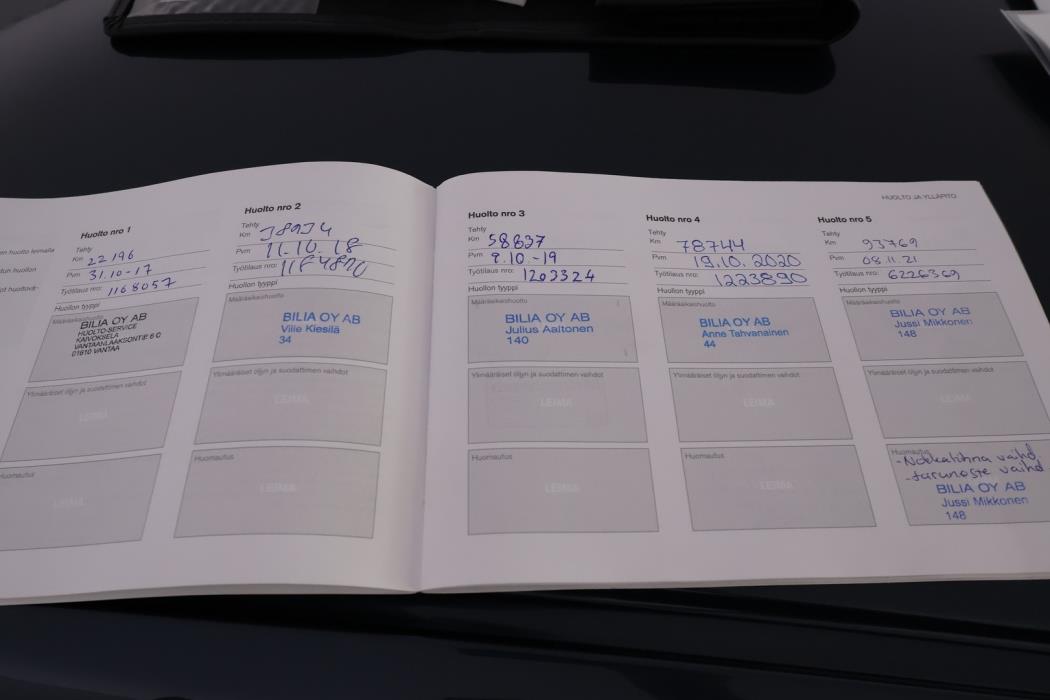 HUOLTO JA YLLÄPITO
Huolto nro 1
Tehty
Km 22 196
Pvm 31.10-17
Työtilaus nro: 1168057
Huollon tyyppi
Määräaikaishuolto
BILIA OY AB
HUOLTO-SERVICE
KAIVOKSELA
VANTAANLAAKSONTIE 6 C
01610 VANTAA
Ylimääräiset öljyn ja suodattimen vaihdot
LEIMA
Huomautus
LEIMA
Huolto nro 2
Tehty
Km
Pvm 11.10.18
Työtilaus nro:
Huollon tyyppi
Määräaikaishuolto
BILIA OY AB
Ville Kiesilä
34
Ylimääräiset öljyn ja suodattimen vaihdot
LEIMA
Huomautus
LEIMA
Huolto nro 3
Tehty
Km 58837
Pvm 9.10.-19
Työtilaus nro: 1203324
Huollon tyyppi
Määräaikaishuolto
BILIA OY AB
Julius Aaltonen
140
Ylimääräiset öljyn ja suodattimen vaihdot
LEIMA
Huomautus
LEIMA
Huolto nro 4
Tehty
Km 78744
Pvm 19.10.2020
Työtilaus nro: 1223890
Huollon tyyppi
Määräaikaishuolto
BILIA OY AB
Anne Tahvanainen
44
Ylimääräiset öljyn ja suodattimen vaihdot
LEIMA
Huomautus
LEIMA
Huolto nro 5
Tehty
Km 93769
Pvm 08.11.21
Työtilaus nro: 6226369
Huollon tyyppi
Määräaikaishuolto
BILIA OY AB
Jussi Mikkonen
148
Ylimääräiset öljyn ja suodattimen vaihdot
LEIMA
Huomautus
- Nokkahihna vaihd.
- Jarruneste vaihd
BILIA OY AB
Jussi Mikkonen
148